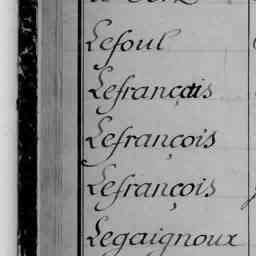 Lefoul
Lefrançais
Lefrançois
Lefrançois
Legaignoux